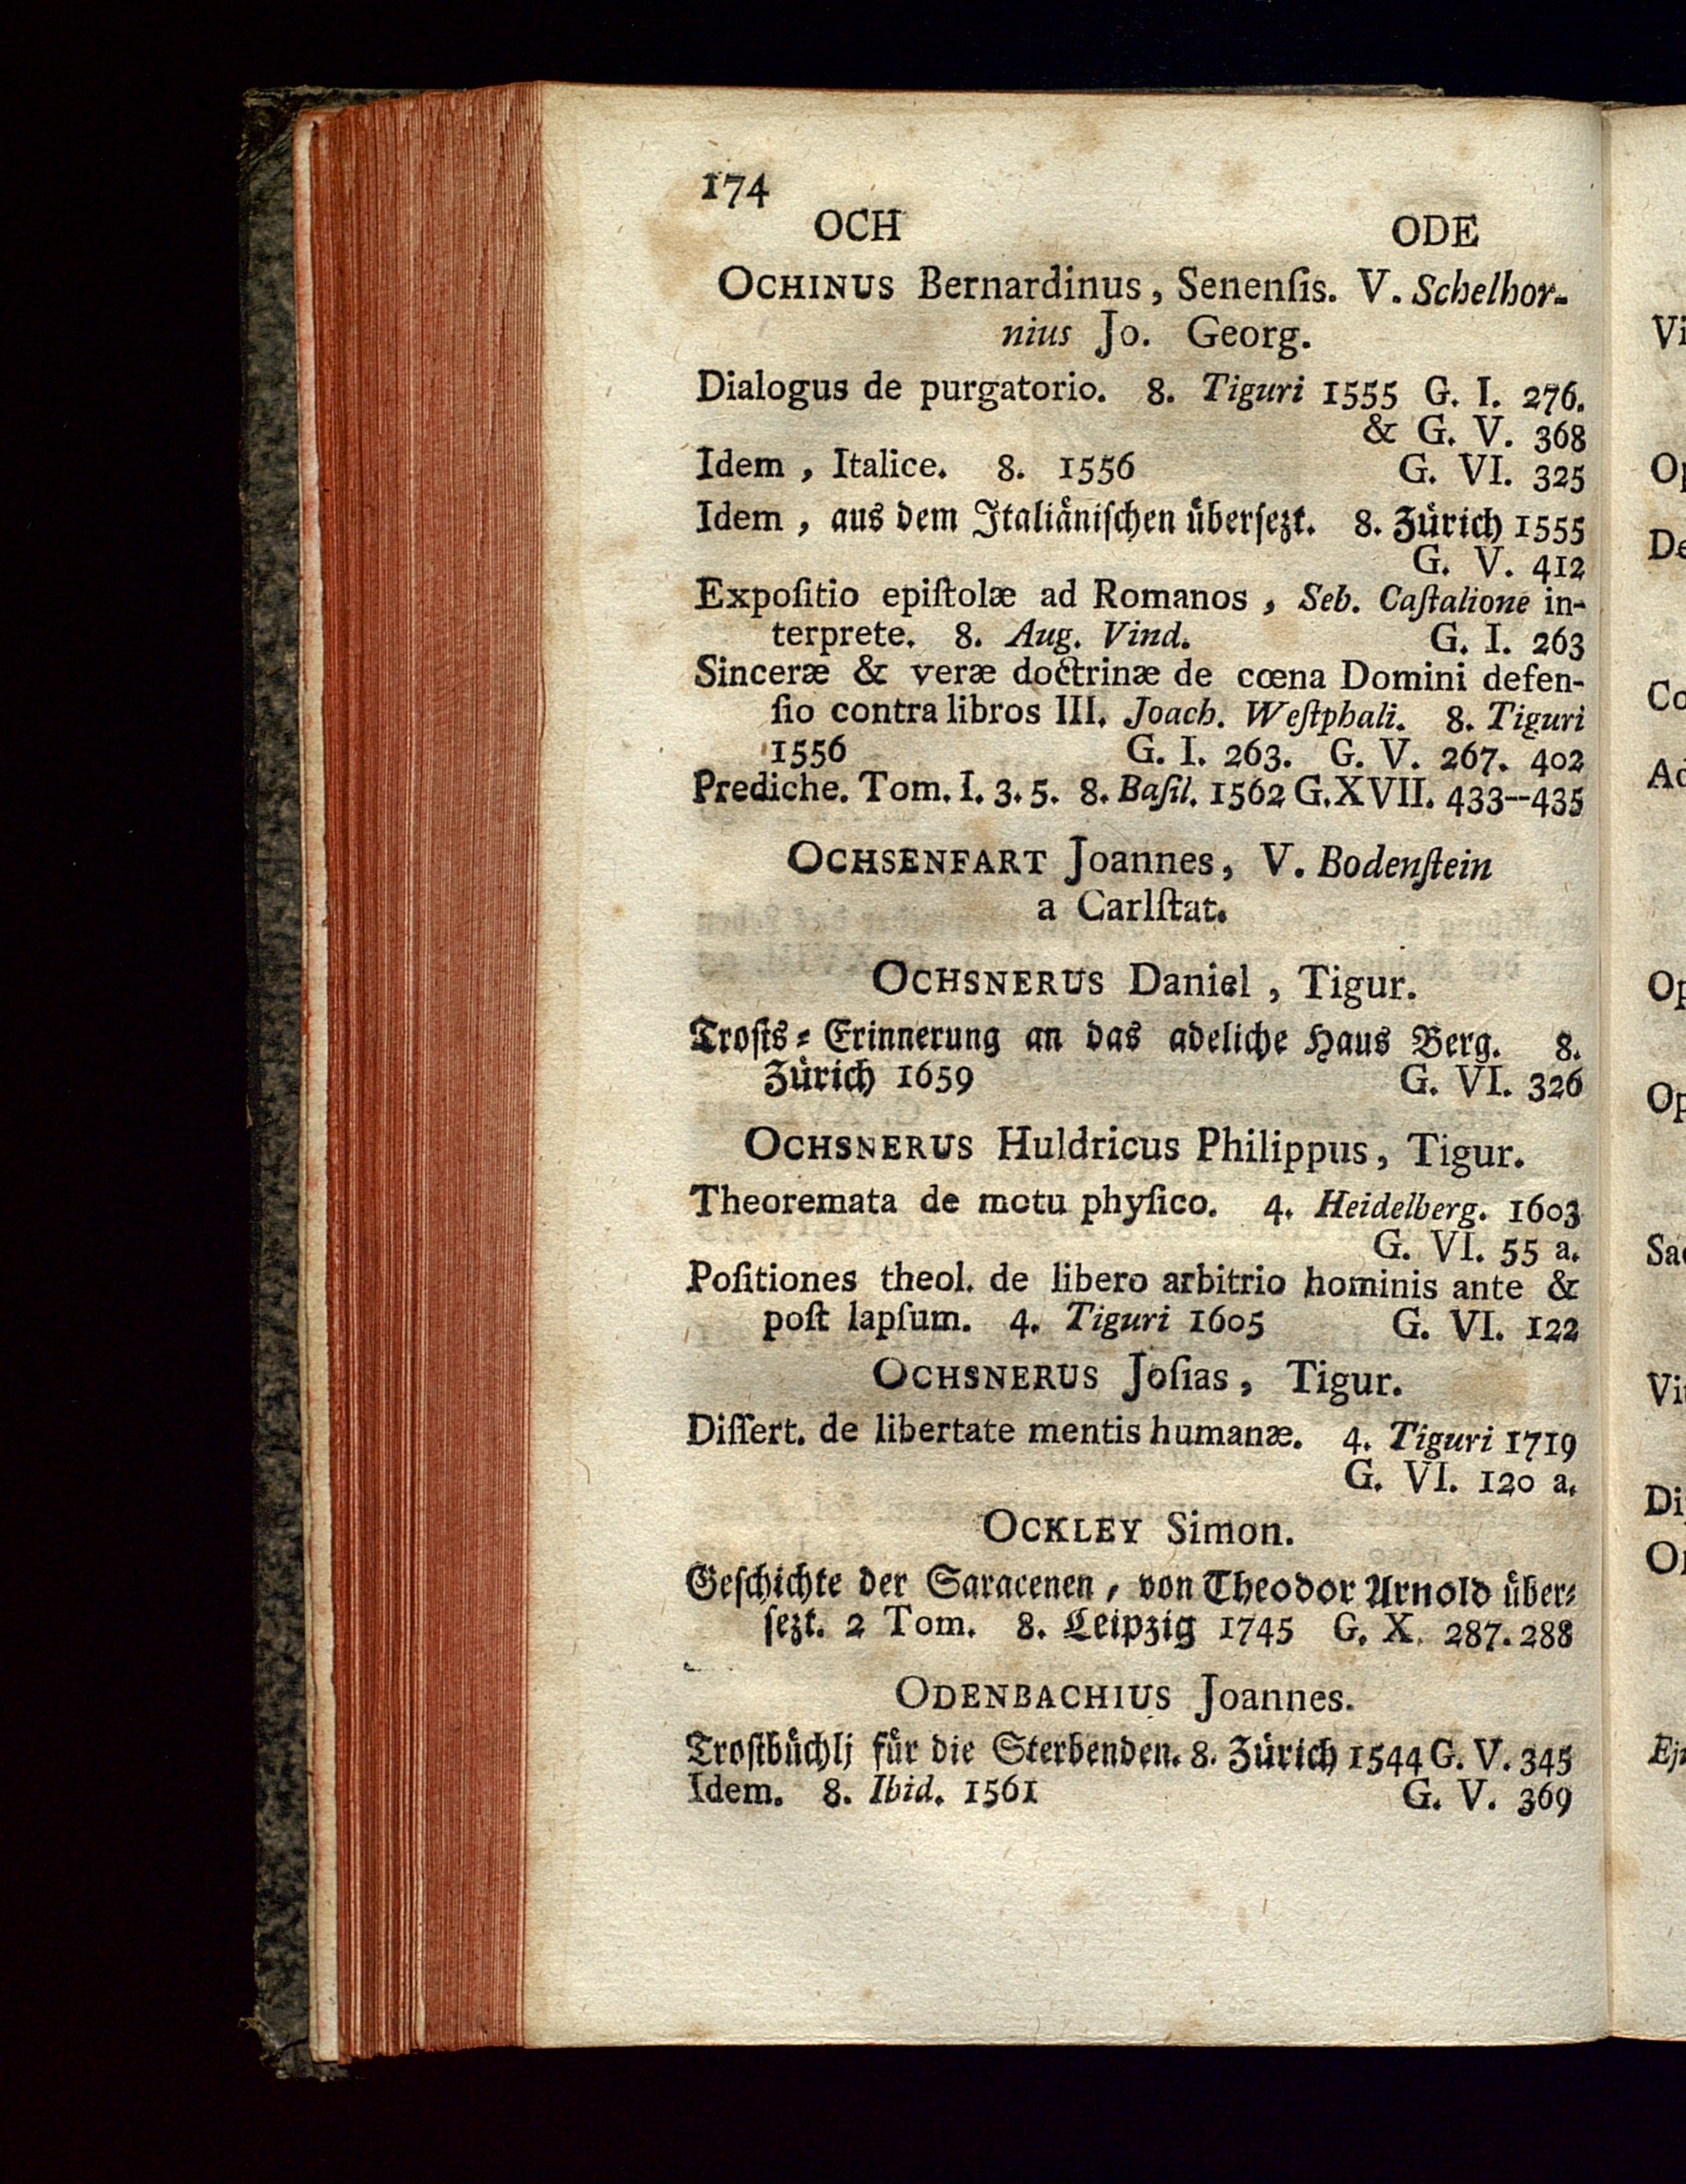 174
OCH ODE
OCHINUS Bernardinus, Senenſis. V. Schelhor-
nius Jo. Georg.
Dialogus de purgatorio. 8. Tiguri 1555 G. I. 276.
& G. V. 368
Idem, Italice. 8. 1556 G. VI. 325
Idem, aus dem Italiänischen überſezt. 8. Zürich 1555
G. V. 412
Expoſitio epiſtolæ ad Romanos, Seb. Caſtalione in-
terprete. 8. Aug. Vind. G. I. 263
Sinceræ & veræ doctrinæ de cœna Domini defen-
ſio contra libros III. Joach. Weſtphali. 8. Tiguri
1556 G. I. 263. G. V. 267. 402
Prediche. Tom. I. 3. 5. 8. Baſil. 1562 G. XVII. 433--435
OCHSENFART Joannes, V. Bodenſtein
a Carlſtat.
OCHSNERUS Daniel, Tigur.
Troſts-Erinnerung an das adeliche Haus Berg. 8.
Zürich 1659 G. VI. 326
OCHSNERUS Huldricus Philippus, Tigur.
Theoremata de motu phyſico. 4. Heidelberg. 1603
G. VI. 55 a.
Poſitiones theol. de libero arbitrio hominis ante &
poſt lapſum. 4. Tiguri 1605 G. VI. 122
OCHSNERUS Joſias, Tigur.
Diſſert. de libertate mentis humanæ. 4. Tiguri 1719
G. VI. 120 a.
OCKLEY Simon.
Geſchichte der Saracenen, von Theodor Arnold über-
ſezt. 2 Tom. 8. Leipzig 1745 G. X. 287. 288
ODENBACHIUS Joannes.
Troſtbüchlj für die Sterbenden. 8. Zürich 1544 G. V. 345
Idem. 8. Ibid. 1561 G. V. 369